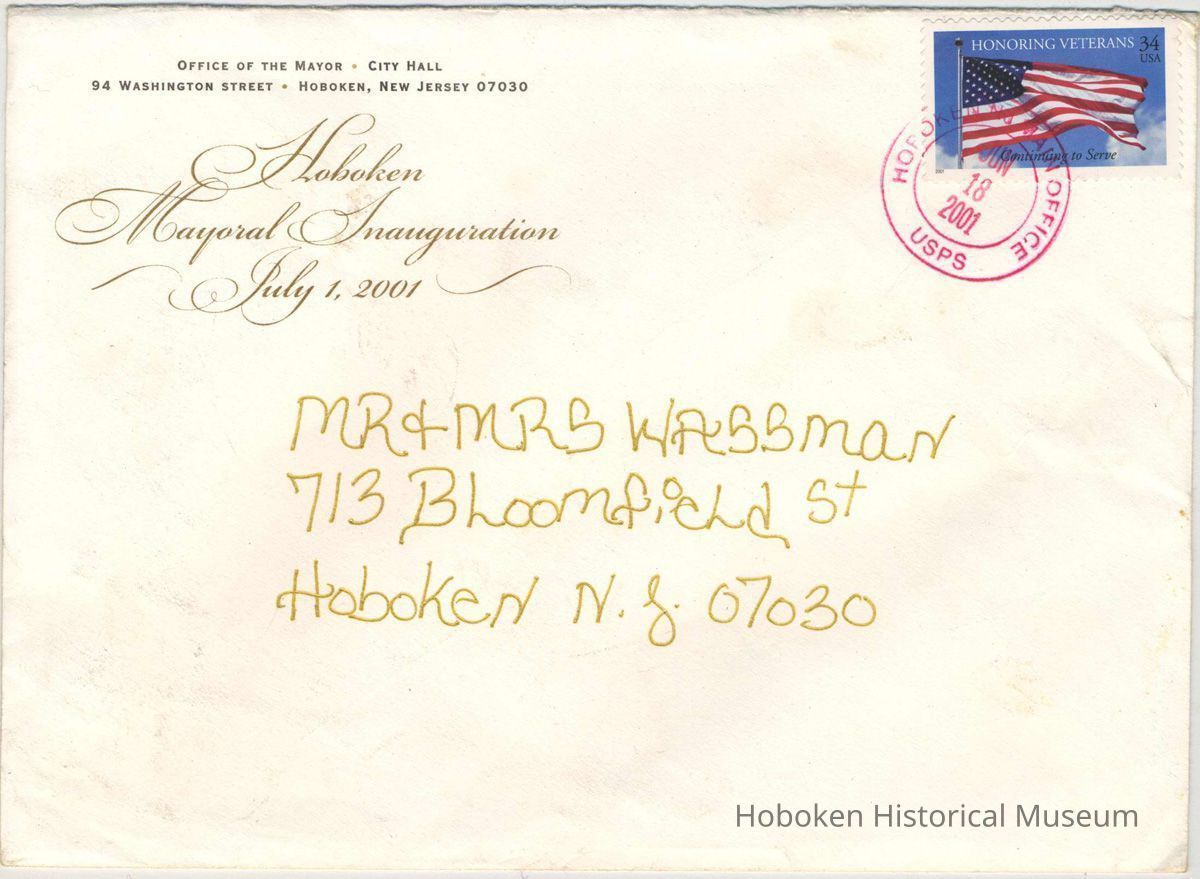 OFFICE OF THE MAYOR • CITY HALL
94 WASHINGTON STREET • HOBOKEN, NEW JERSEY 07030
Hoboken
Mayoral Inauguration
July 1, 2001
HONORING VETERANS 34
USA
Continuing to Serve
2001
HOBOKEN NJ MAIN OFFICE
JUN
18
2001
USPS
MR & MRS WASSMAN
713 Bloomfield St
Hoboken N.J. 07030
Hoboken Historical Museum